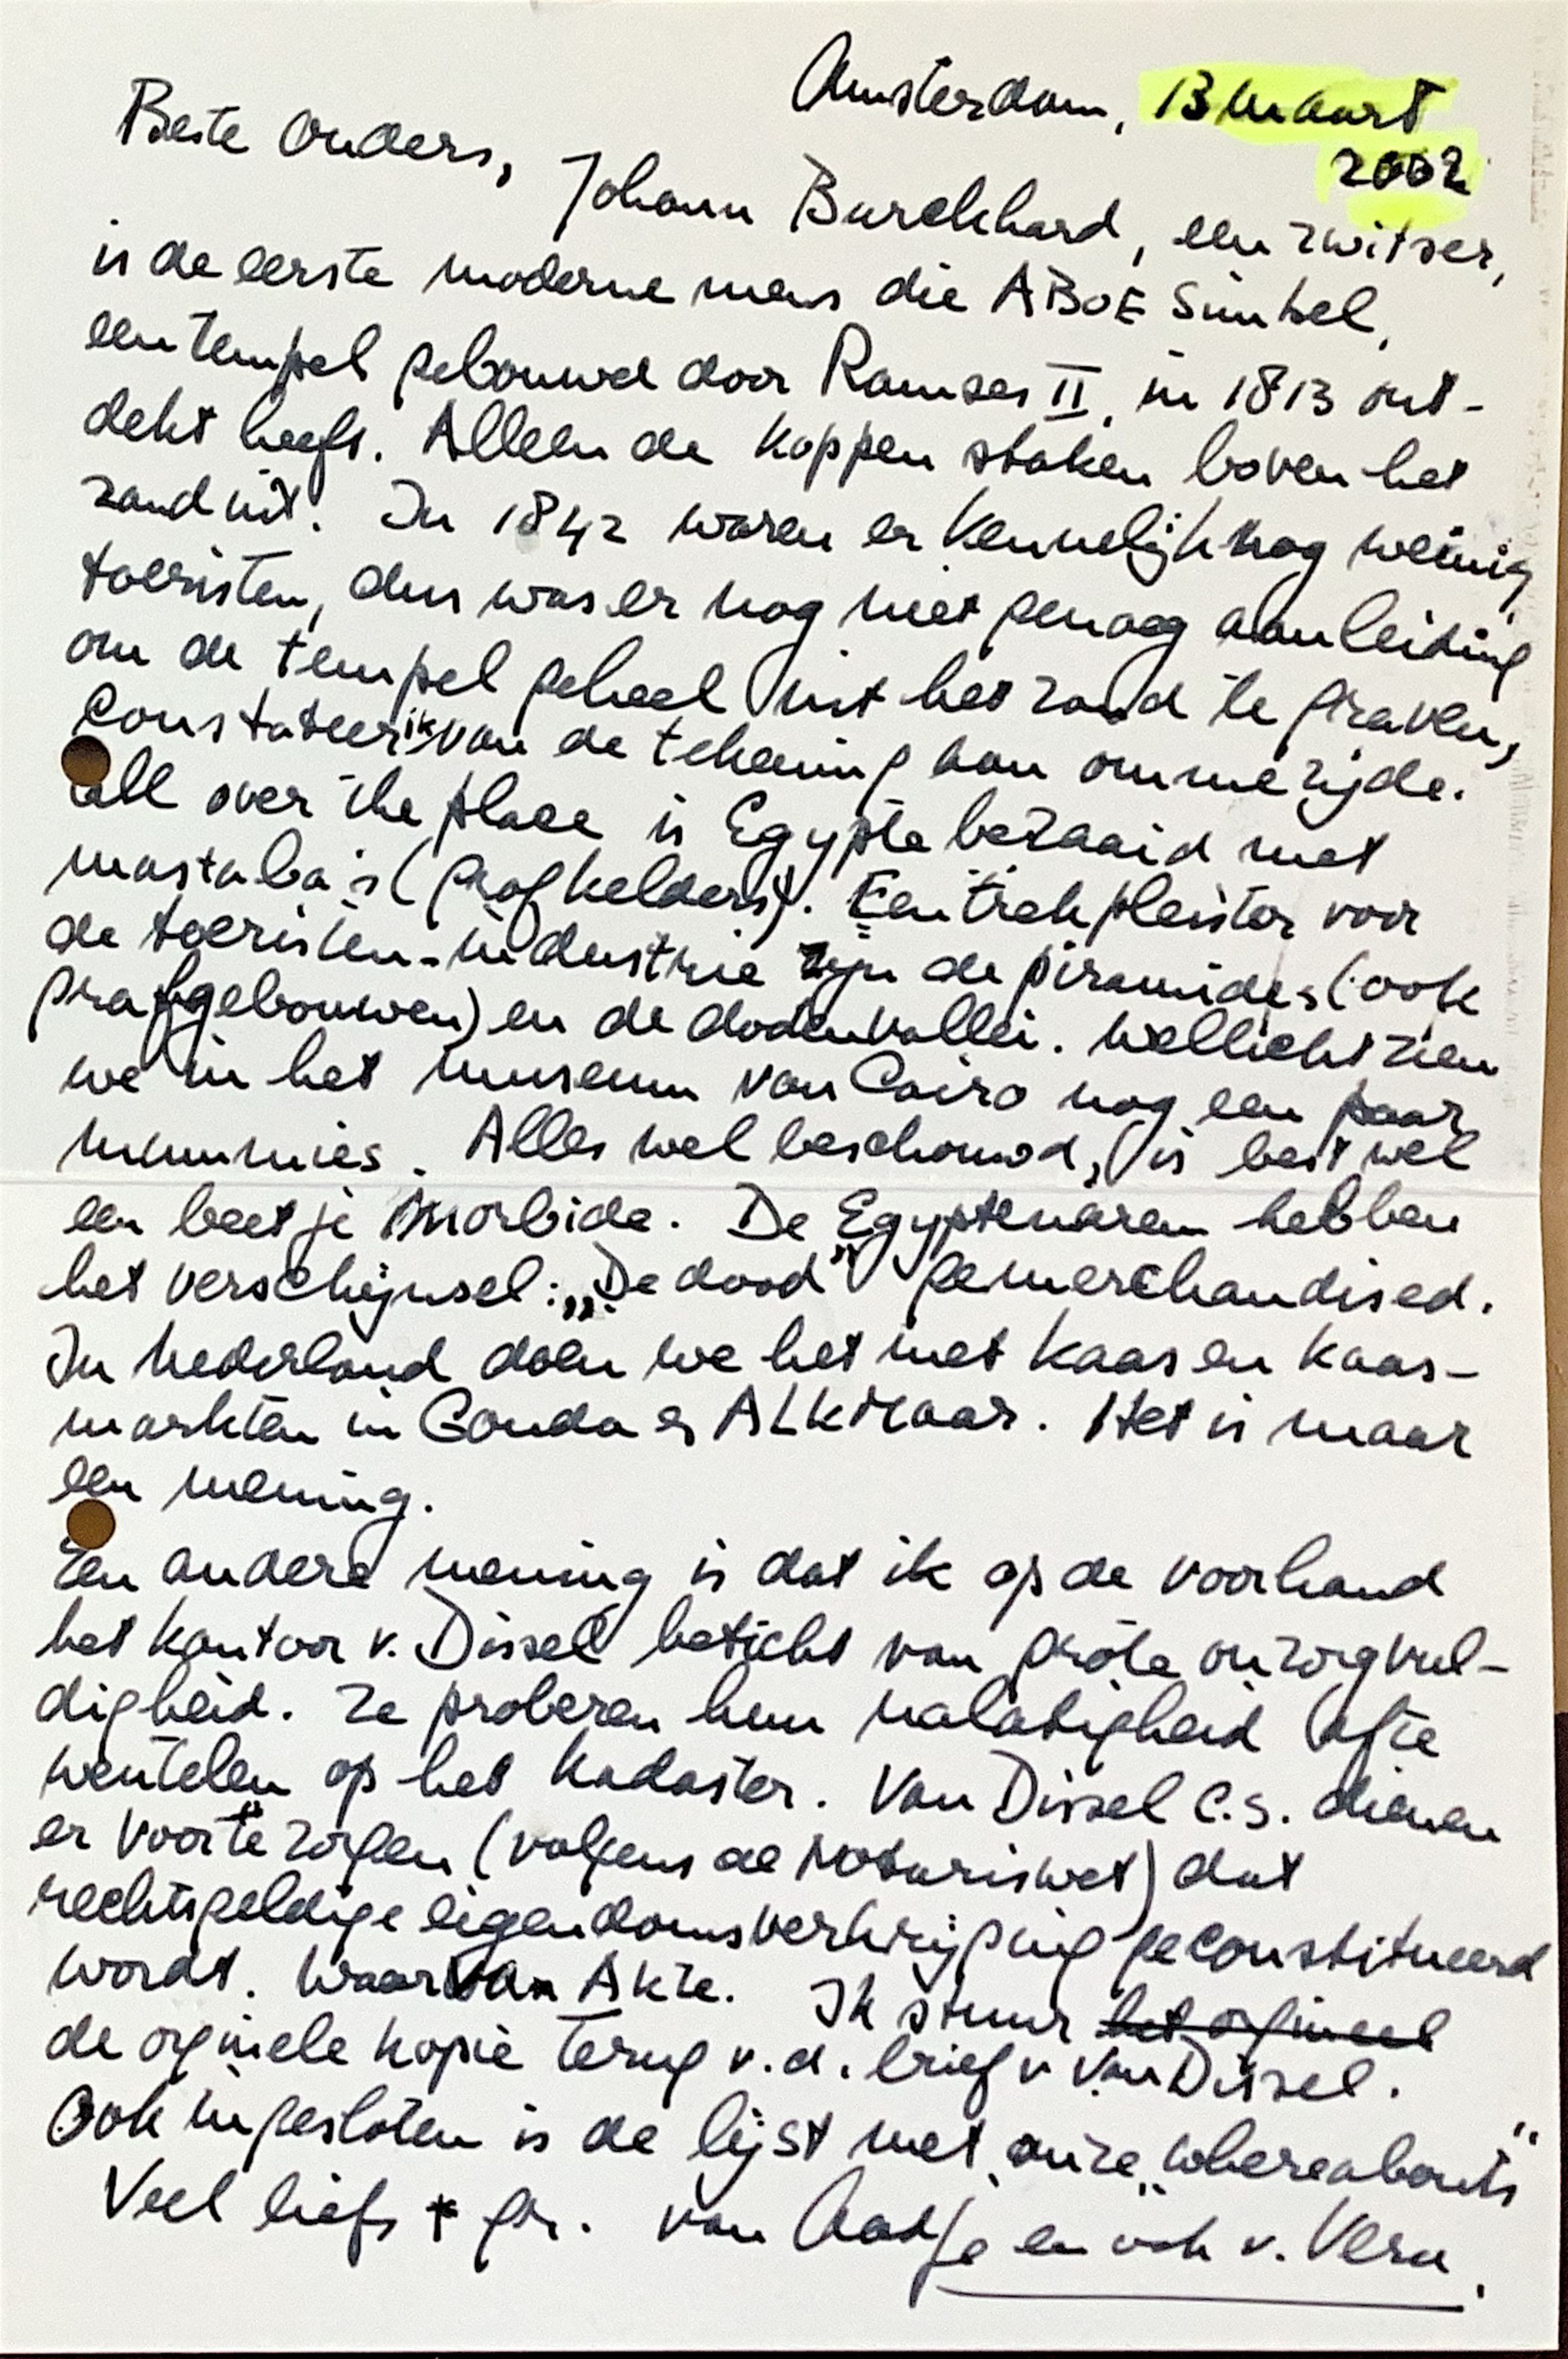 Amsterdam, 13 maart
2002
Beste Ouders,
Johann Burckhard, een zwitser,
is de eerste moderne mens die ABOE Simbel,
een tempel gebouwd door Ramses II, in 1813 ont-
dekt heeft. Alleen de koppen staken boven het
zand uit. In 1842 waren er kennelijk nog weinig
toeristen, dus was er nog niet genoeg aanleiding
om de tempel geheel uit het zand te graven,
constateer ik van de tekening aan ommezijde.
all over the place is Egypte bezaaid met
mastaba's (grafkelders). Een trekpleister voor
de toeristen-industrie zijn de piramides (ook
grafgebouwen) en de dodenvallei. Wellicht zien
we in het museum van Cairo nog een paar
mummies. Alles wel beschouwd, is best wel
een beetje morbide. De Egyptenaren hebben
het verschijnsel: „De dood" gemerchandised.
In Nederland doen we het met kaas en kaas-
markten in Gouda en ALKMaar. Het is maar
een mening.
Een andere mening is dat ik op de voorhand
het kantoor v. Dissel beticht van grote onzorgvul-
digheid. Ze proberen hun nalatigheid af te
wentelen op het kadaster. Van Dissel c.s. dienen
er voor te zorgen (volgens de Notariswet) dat
rechtsgeldige eigendomsverkrijging geconstitueerd
wordt. Waarvan Akte. Ik stuur het origineel
de orginele kopie terug v.d. brief v. Van Dissel.
Ook ingesloten is de lijst met onze „whereabouts"
Veel liefs + gr. van Aadje en ook v. Vera.